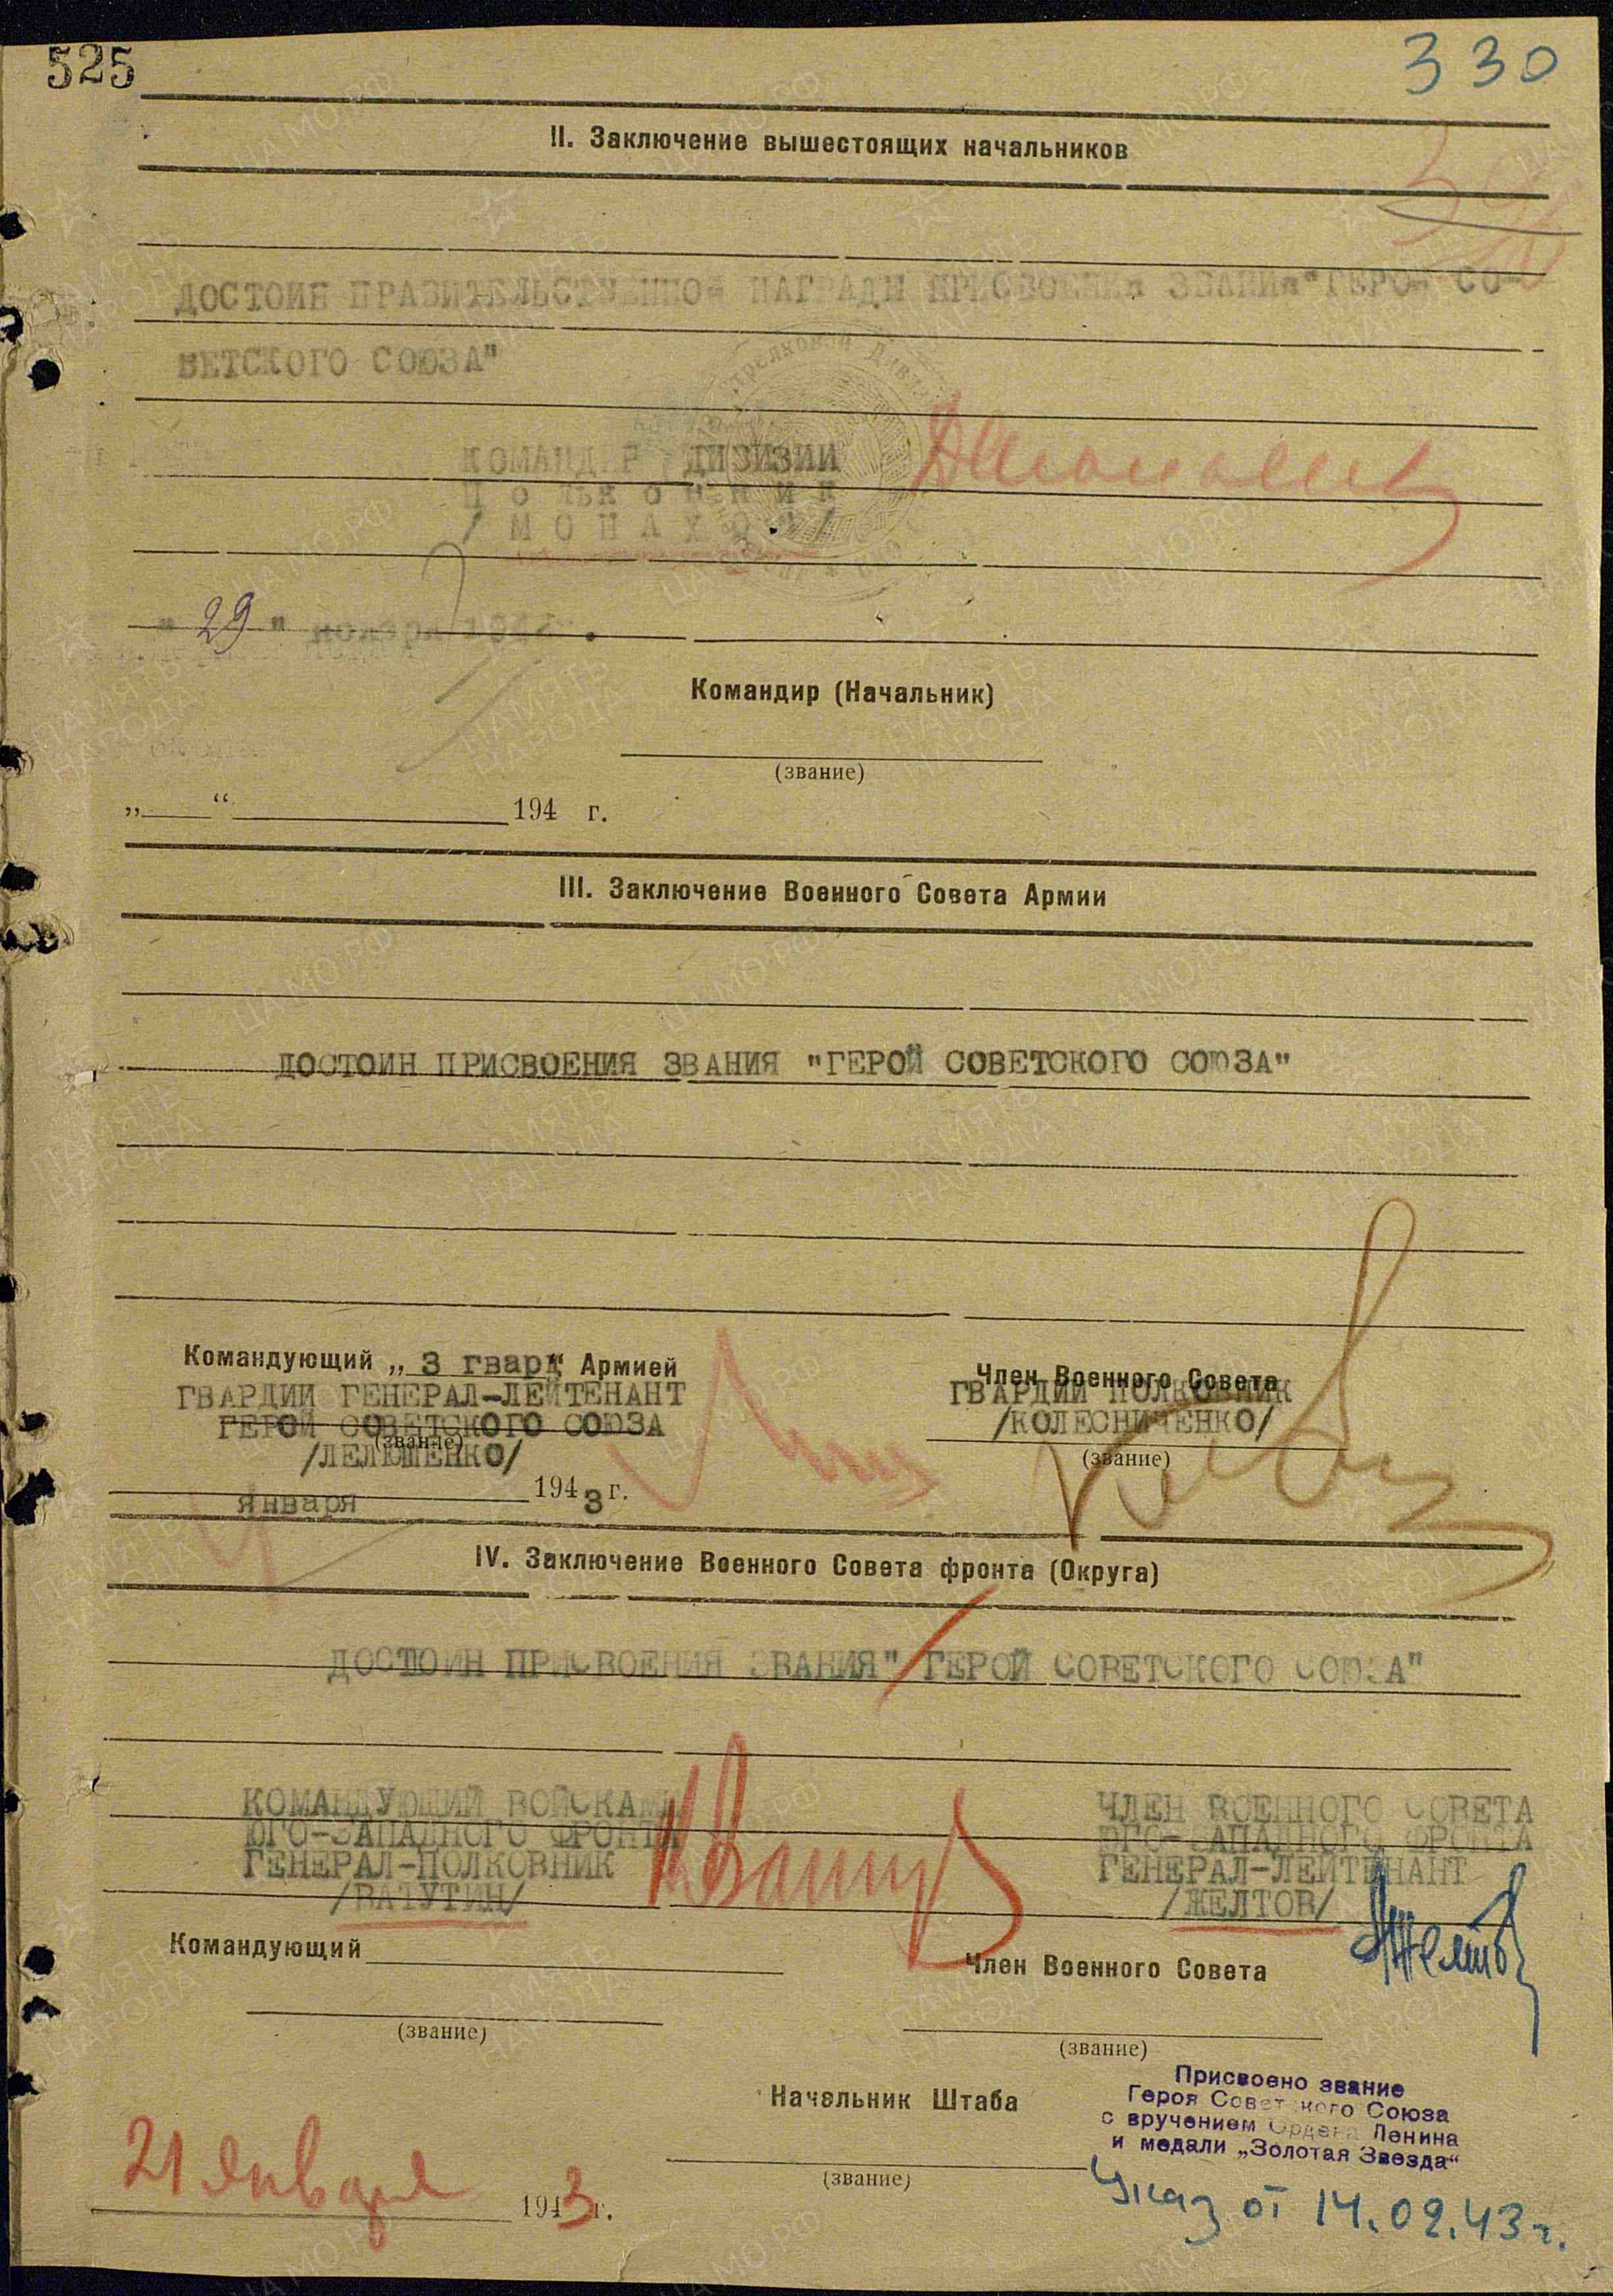 525
330
II. Заключение вышестоящих начальников
ДОСТОИН ПРАВИТЕЛЬСТВЕННОЙ НАГРАДЫ ПРИСВОЕНИЯ ЗВАНИЯ "ГЕРОЙ СО-
ВЕТСКОГО СОЮЗА"
КОМАНДИР ДИВИЗИИ
Полковник
/МОНАХОВ/
"29" ноября 1942 г.
Командир (Начальник)
(звание)
„ “ 194 г.
III. Заключение Военного Совета Армии
ДОСТОИН ПРИСВОЕНИЯ ЗВАНИЯ "ГЕРОЙ СОВЕТСКОГО СОЮЗА"
Командующий „ 3 гвард. Армией
ГВАРДИИ ГЕНЕРАЛ-ЛЕЙТЕНАНТ
ГЕРОЙ СОВЕТСКОГО СОЮЗА
(звание)
/ЛЕЛЮШЕНКО/
января 1943 г.
Член Военного Совета
ГВАРДИИ ПОЛКОВНИК
/КОЛЕСНИЧЕНКО/
(звание)
IV. Заключение Военного Совета фронта (Округа)
ДОСТОИН ПРИСВОЕНИЯ ЗВАНИЯ "ГЕРОЙ СОВЕТСКОГО СОЮЗА"
КОМАНДУЮЩИЙ ВОЙСКАМИ
ЮГО-ЗАПАДНОГО ФРОНТА
ГЕНЕРАЛ-ПОЛКОВНИК
/ВАТУТИН/
ЧЛЕН ВОЕННОГО СОВЕТА
ЮГО-ЗАПАДНОГО ФРОНТА
ГЕНЕРАЛ-ЛЕЙТЕНАНТ
/ЖЕЛТОВ/
Командующий
(звание)
Член Военного Совета
(звание)
Начальник Штаба
(звание)
21 января 1943 г.
Присвоено звание
Героя Советского Союза
с вручением Ордена Ленина
и медали „Золотая Звезда“
Указ от 14.02.43 г.